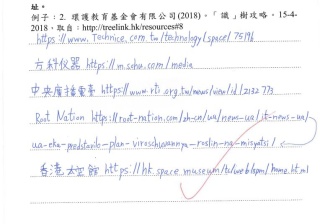 址。
例子：2. 環護教育基金會有限公司(2018)。「識」樹攻略。15-4-
2018。取自：http://treelink.hk/resources#8
https://www.technice.com.tw/technology/space/75196
方科仪器 https://m.sohu.com/media
中央廣播電臺 https://www.rti.org.tw/news/view/id/2132773
Root Nation https://root-nation.com/zh-cn/ua/news-ua/it-news-ua/
ua-eka-predstavilo-plan-viroschuvannya-roslin-na-misyatsi/
香港太空館 https://hk.space.museum/tc/web/spm/home.html